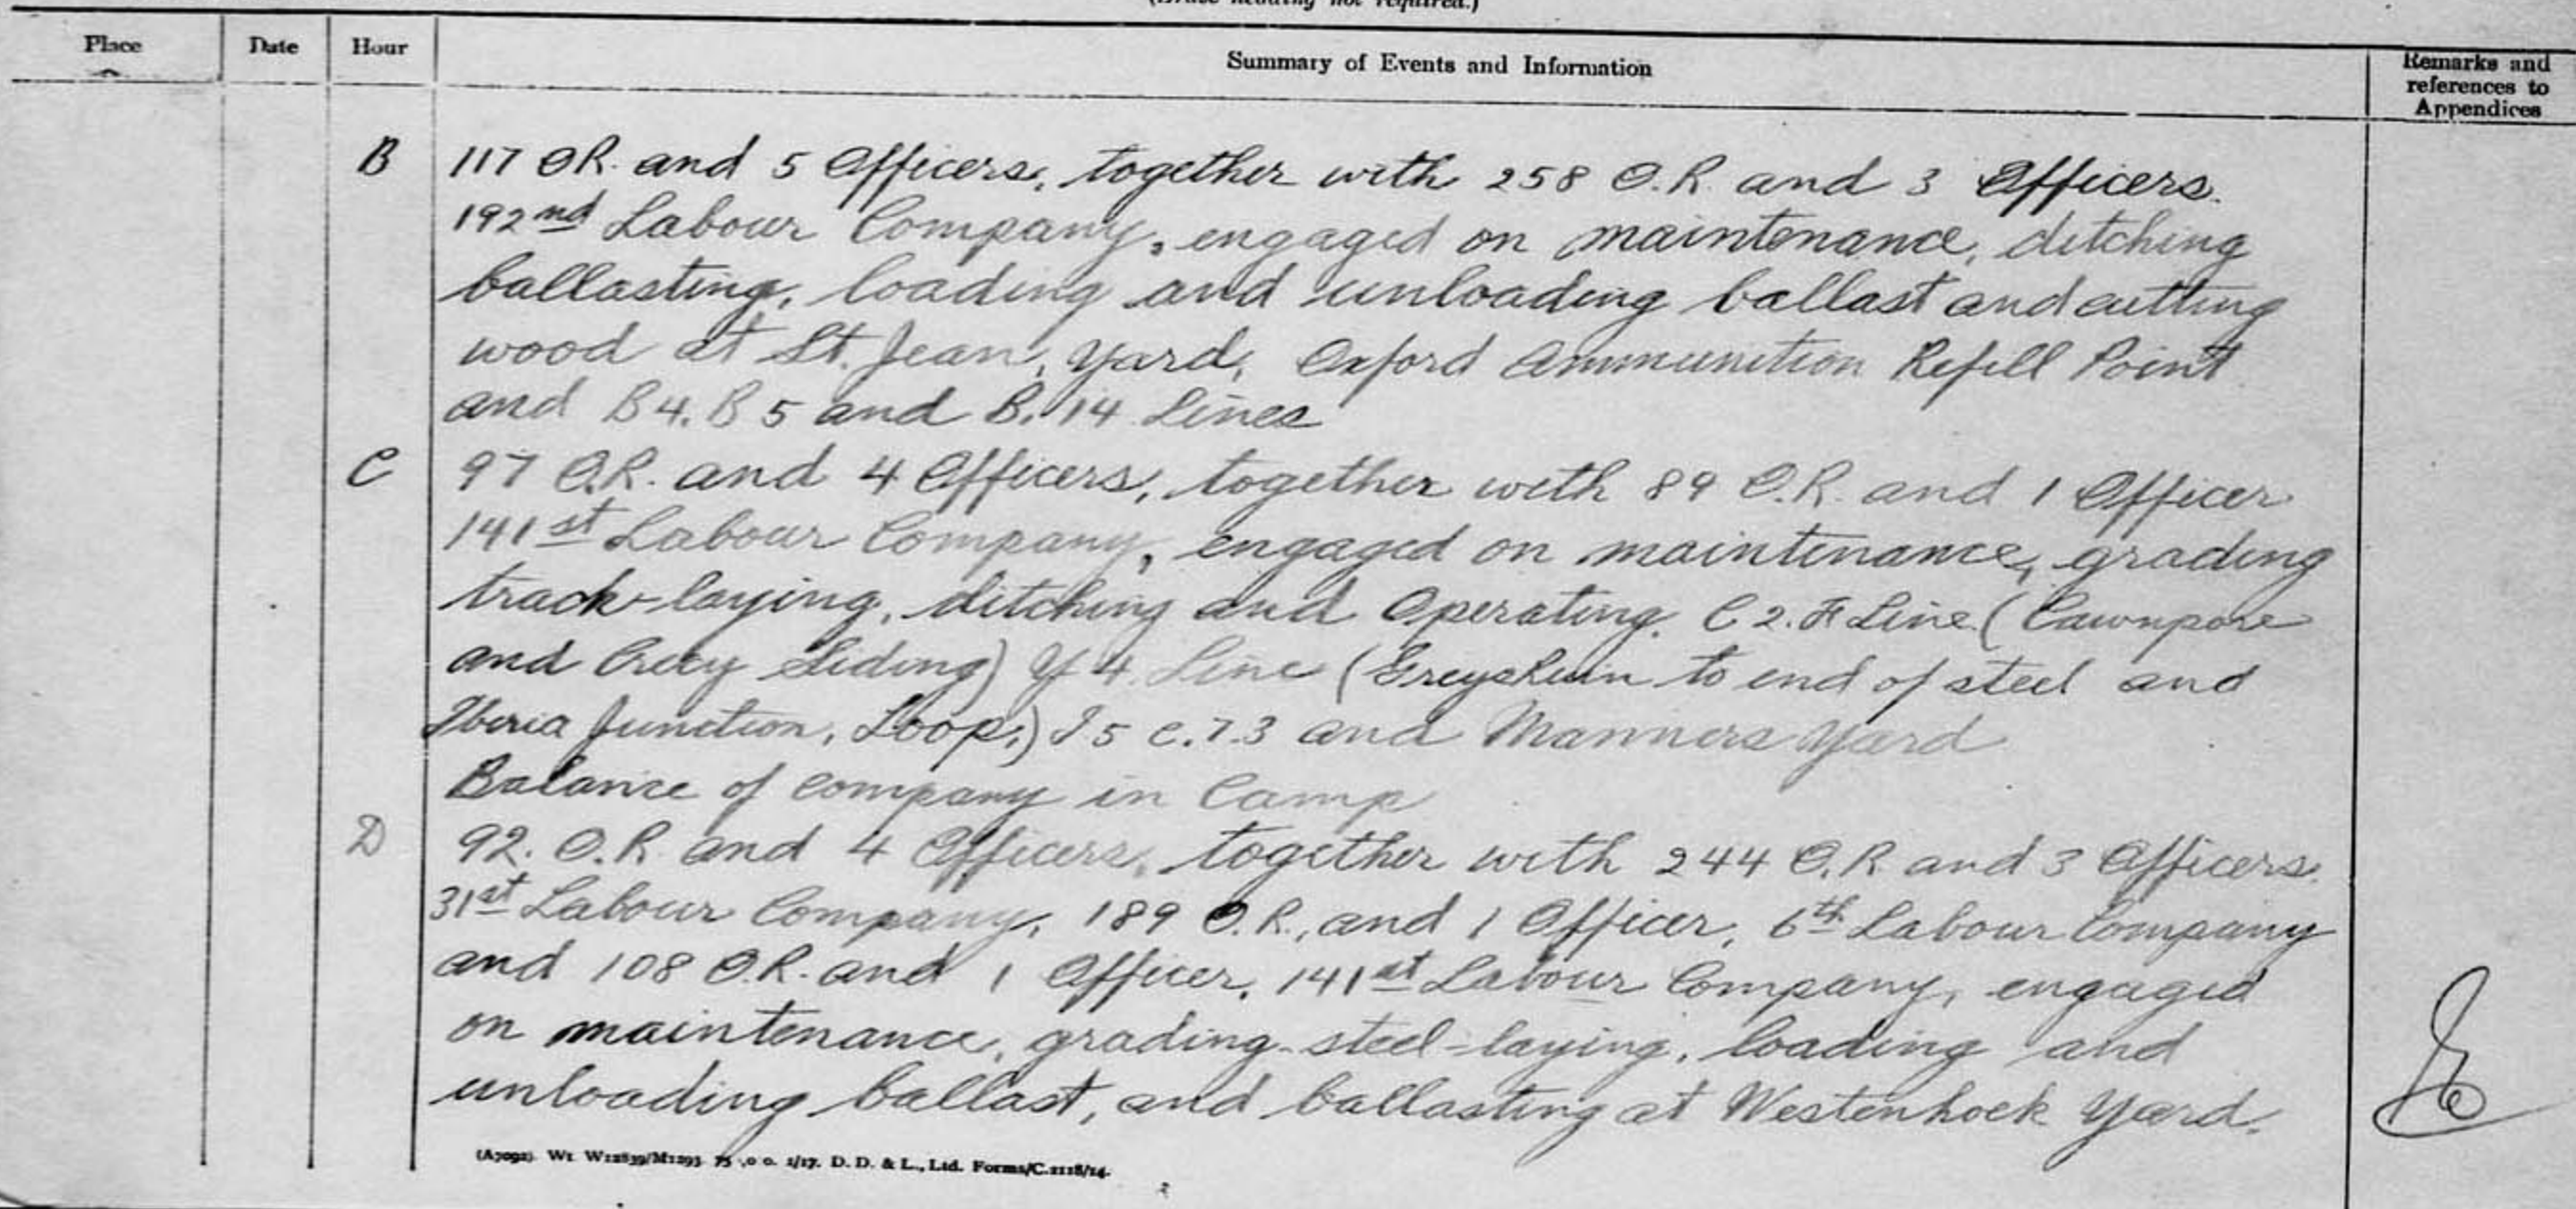 (Erase heading not required.)
Place Date Hour Summary of Events and Information Remarks and references to Appendices
B 117 OR. and 5 Officers, together with 258 O.R. and 3 Officers.
192nd Labour Company, engaged on maintenance, ditching
ballasting, loading and unloading ballast and cutting
wood at St. Jean, Yard, Oxford Ammunition Refill Point
and B4. B5 and B.14 Lines
C 97 O.R. and 4 Officers, together with 89 O.R. and 1 Officer
141st Labour Company, engaged on maintenance, grading
track-laying, ditching and Operating. C2. Line (Cawnpore
and Crecy Siding) Y4. Line (Greys Ruin to end of steel and
Iberia Junction, Loop.) I5 c.7.3 and Manners Yard
Balance of Company in Camp
D 92. O.R and 4 Officers, together with 244 O.R and 3 Officers.
31st Labour Company, 189 O.R., and 1 Officer, 6th Labour Company
and 108 O.R. and 1 Officer, 141st Labour Company, engaged
on maintenance, grading steel-laying, loading and
unloading ballast, and ballasting at Westenhoek Yard.
(A7092). Wt W12839/M1293 75 ,0 0. 1/17. D. D. & L., Ltd. Forms/C.2118/14.